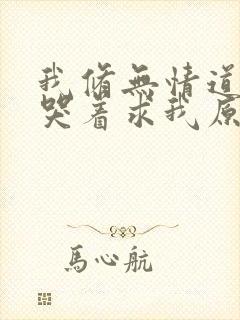 我脩無情道
哭着求我原
馬心航